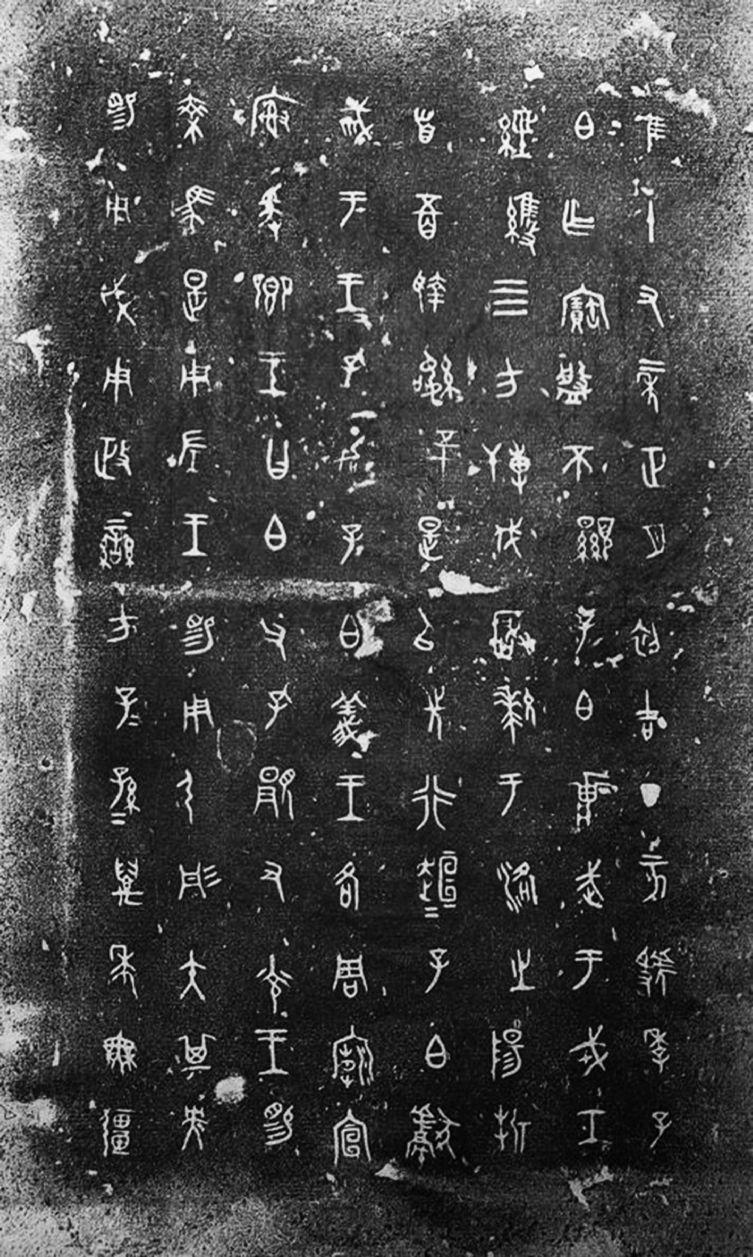 隹十又二年正月初吉丁亥虢季子
白乍寶盤不顯子白𤕌武于戎工
經維四方搏伐玁狁于洛之陽折
首五百執訊五十是以先行桓桓子白獻
馘于王王孔加子白義王各周廟宣
榭爰鄉王曰白父孔顯又光王睗
乘馬是用左王睗用弓彤矢其央
睗用戉用政蠻方子子孫孫萬年無疆